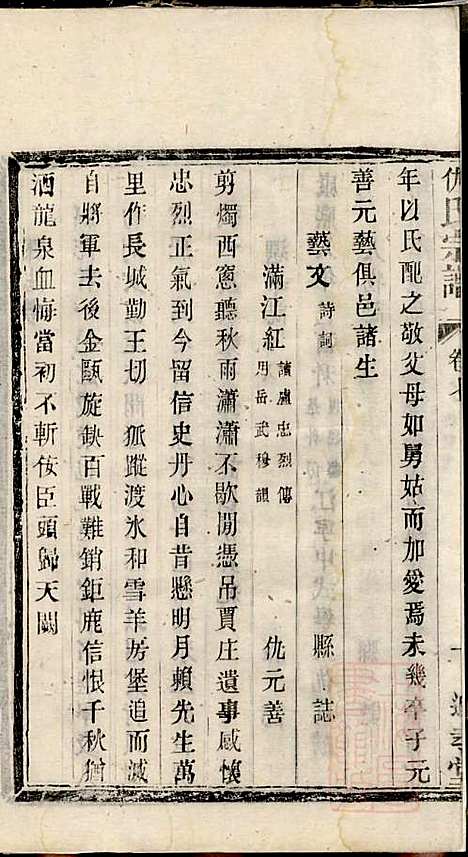 仇氏宗譜 卷七
年以氏配之敬父母如舅姑而加愛焉未幾卒子元
善元藝俱邑諸生
藝文 詩詞 縣誌
滿江紅 讀盧忠烈傳 用岳武穆韻 仇元善
剪燭西窻聽秋雨瀟瀟不歇閒憑吊賈庄遺事感懷
忠烈正氣到今留信史丹心自昔懸明月賴先生萬
里作長城勤王切 狐蹤渡氷和雪羊房堡追而滅
自將軍去後金甌旋缺百戰難銷鉅鹿信恨千秋猶
洒龍泉血悔當初不斬佞臣頭歸天闕